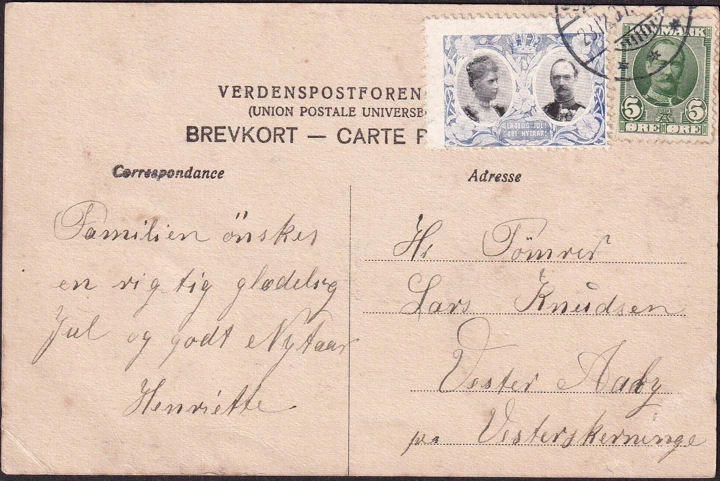 VERDENSPOSTFOREN
(UNION POSTALE UNIVERSE
BREVKORT — CARTE P
GLÆDELIG JUL!
GODT NYTAAR!
MARK
5 5
ØRE ØRE
23.12.
Correspondance
Familien ønskes
en rigtig glædelig
Jul og godt Nytaar
Henriette
Adresse
Hr Tømrer
Lars Knudsen
Vester Aaby
pr Vesterskerninge